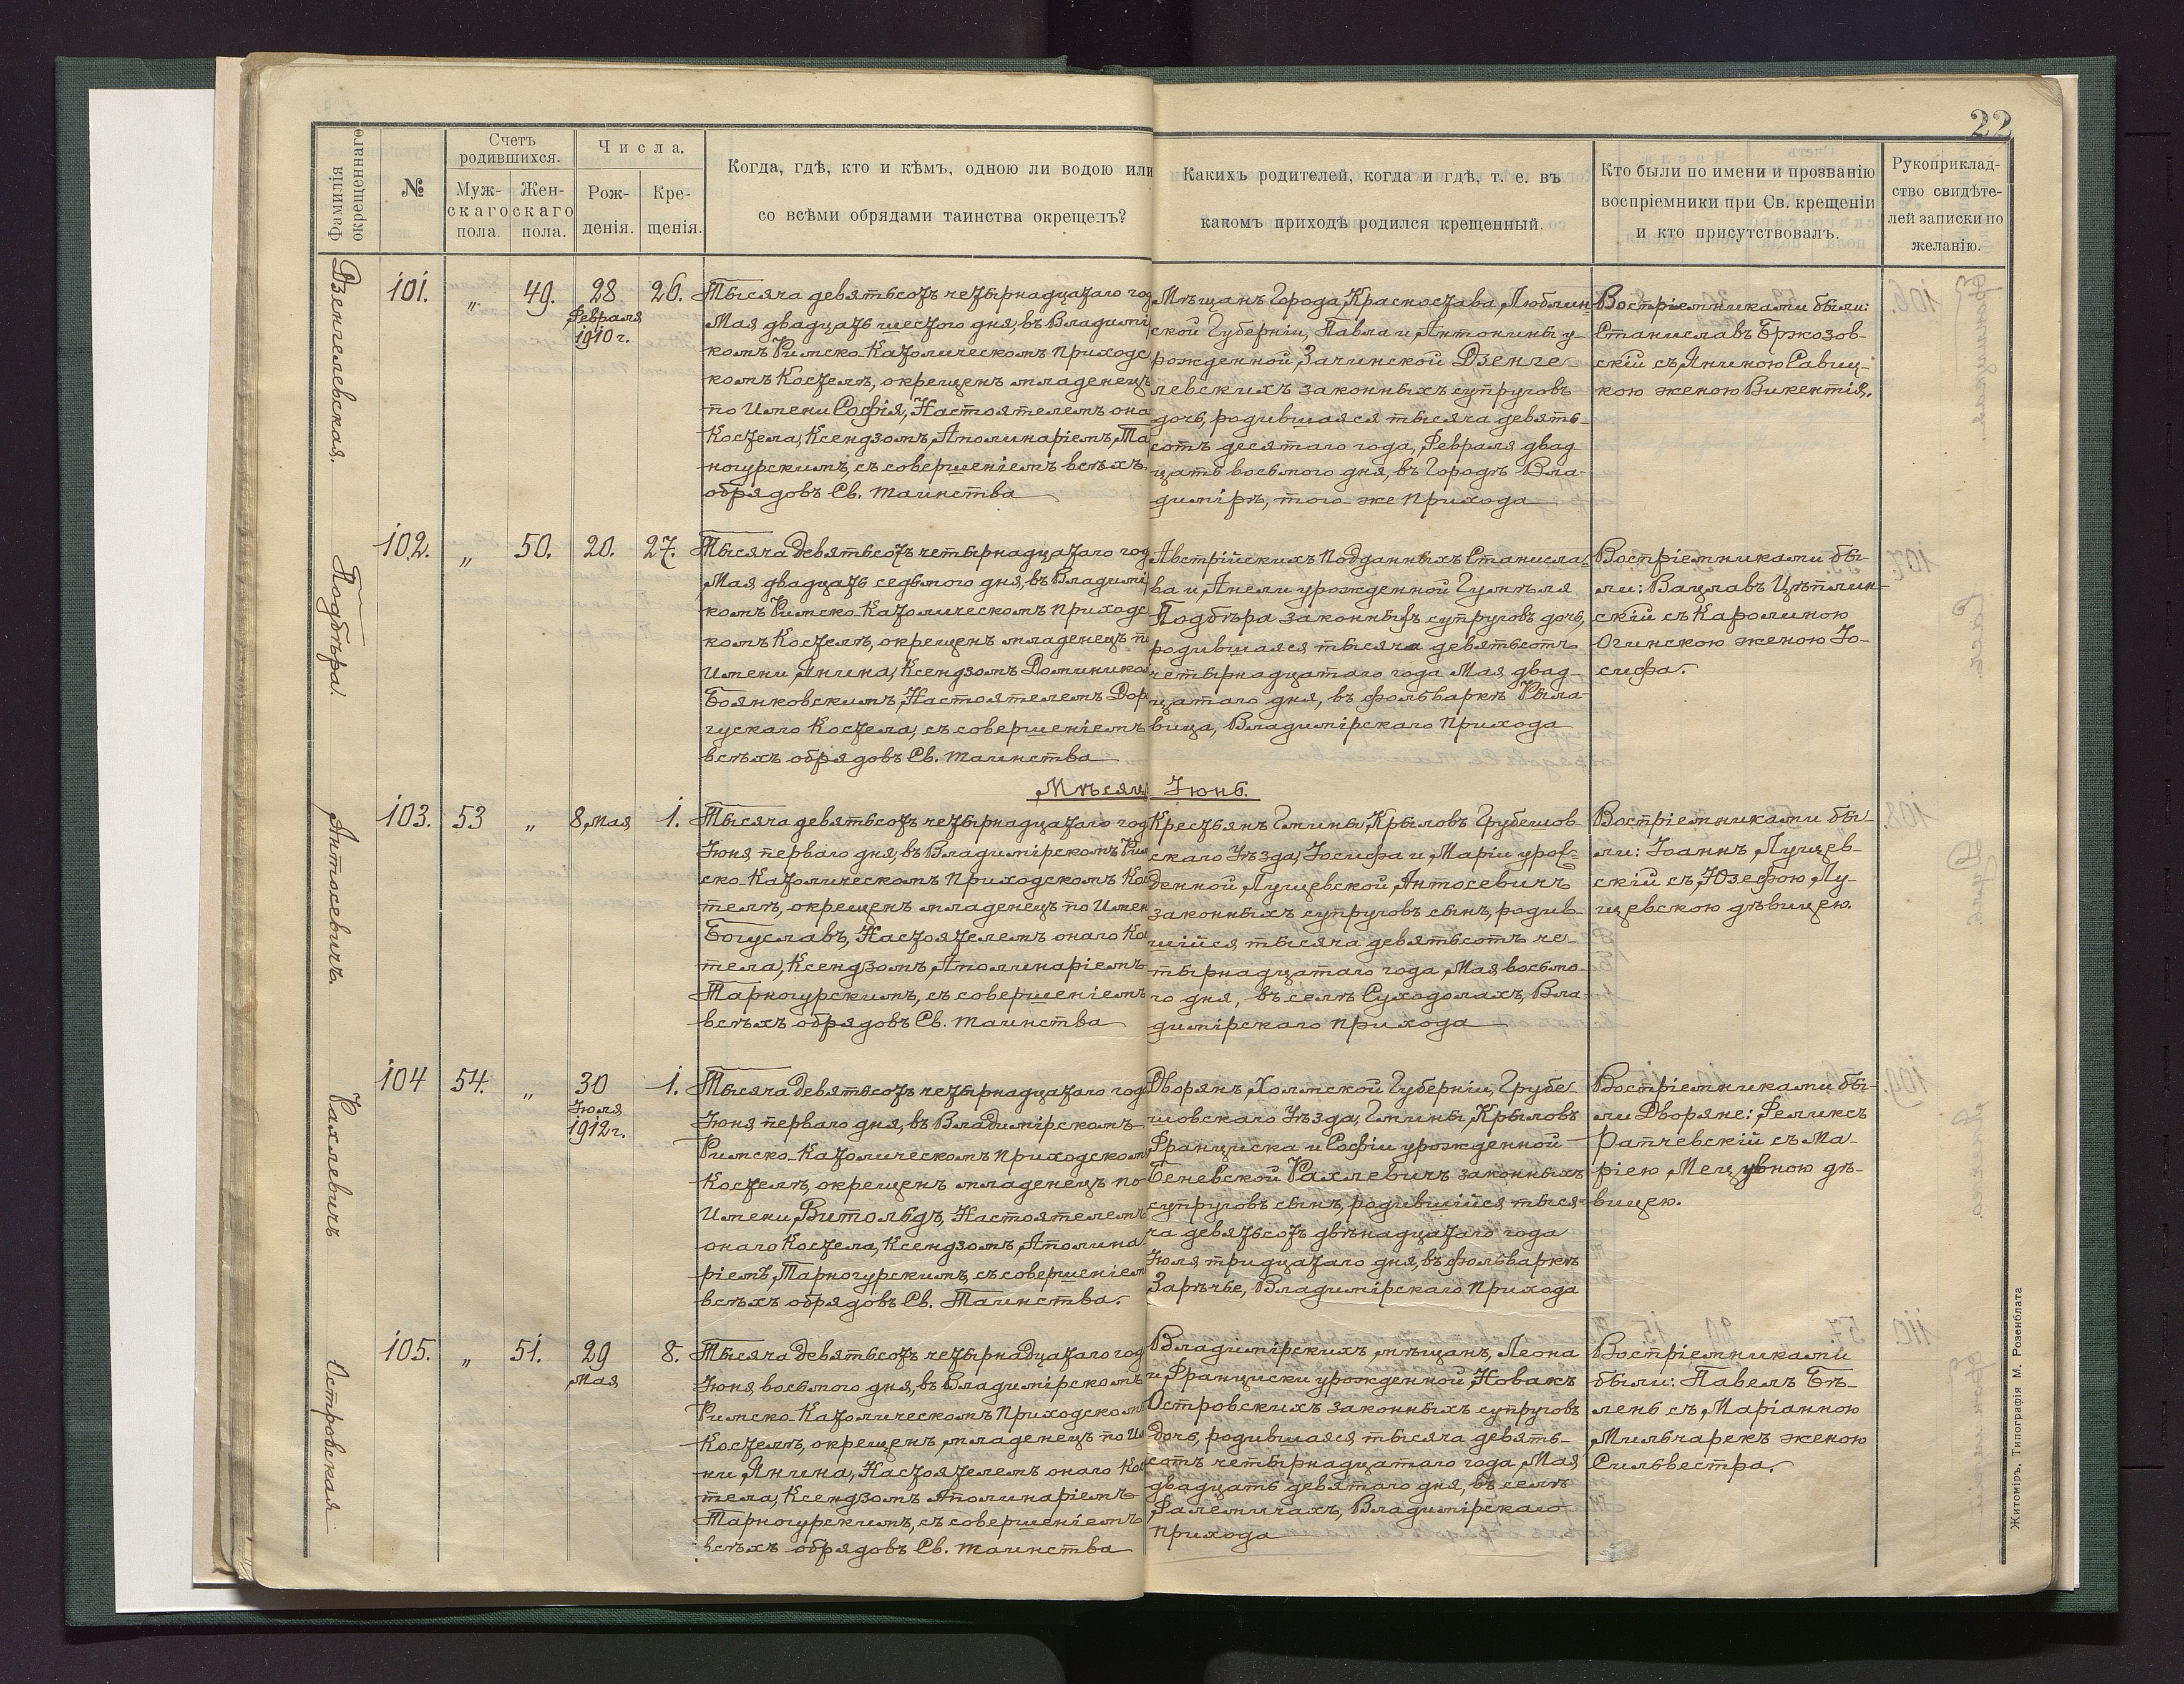 22
Фамилія окрещеннаго
№
Счетъ родившихся.
Муж-скаго пола.
Жен-скаго пола.
Числа.
Рож-денія.
Кре-щенія.
Когда, гдѣ, кто и кѣмъ, одною ли водою или
со всѣми обрядами таинства окрещенъ?
Какихъ родителей, когда и гдѣ, т. е. въ
какомъ приходѣ родился крещенный.
Кто были по имени и прозванію
воспріемники при Св. крещеніи
и кто присутствовалъ.
Рукоприклад-
ство свидѣте-
лей записки по
желанію.
Дзенгелевская.
101.
„
49.
28
Февраля
1910 г.
26.
Тысяча девятьсотъ четырнадцатаго год
Мая двадцать шестого дня, въ Владимі
комъ Римско-Католическомъ приходс
комъ Костелѣ, окрещенъ младенецъ
по имени Софія, Настоятелемъ она
Костела, Ксендзомъ Аполинаріемъ Та
ногурскимъ, съ совершеніемъ всѣхъ
обрядовъ Св. таинства
Мѣщанъ Города Красностава, Люблин-
ской Губерніи, Павла и Антонины у-
рожденной Зачинской Дзенге-
левскихъ законныхъ супруговъ
дочь, родившаяся тысяча девять-
сотъ десятаго года, Февраля двад
цать восьмого дня, въ Городѣ Вла-
димірѣ, того-же прихода
Воспріемниками были:
Станиславъ Бржозов-
скій съ Яниною Савиц-
кою женою Викентія.
Подбѣра.
102.
„
50.
20.
27.
Тысяча девятьсотъ четырнадцатаго год
Мая двадцать седьмого дня, въ Владимі
комъ Римско-Католическомъ приходс
комъ Костелѣ, окрещенъ младенецъ п
имени Янина, Ксендзомъ Доминико
Боянковскимъ, Настоятелемъ Дор
гускаго Костела, съ совершеніемъ
всѣхъ обрядовъ Св. таинства
Австрійскихъ подданныхъ Станисла-
ва и Анели урожденной Гумѣля
Подбѣра законныхъ супруговъ дочь,
родившаяся тысяча девятьсотъ
четырнадцатаго года Мая двад-
цатаго дня, въ фольваркѣ Рыла-
вица, Владимірскаго прихода
Воспріемниками бы-
ли: Вацлавъ Цѣплин-
скій съ Каролиною
Огинскою женою Іо-
сифа.
Мѣсяц Іюнь.
Антосевичъ.
103.
53
„
8 Мая
1.
Тысяча девятьсотъ четырнадцатаго год
Іюня перваго дня, въ Владимірскомъ Рим
ско-Католическомъ приходскомъ Кос
телѣ, окрещенъ младенецъ по имен
Богуславъ, Настоятелемъ онаго Ко
тела, Ксендзомъ Аполинаріемъ
Тарногурскимъ, съ совершеніемъ
всѣхъ обрядовъ Св. таинства
Крестьянъ Гмины Крыловъ Грубешов-
скаго Уѣзда, Іосифа и Маріи урож-
денной Лущевской Антосевичъ
законныхъ супруговъ сынъ, родив-
шійся тысяча девятьсотъ че-
тырнадцатаго года Мая восьмо-
го дня, въ селѣ Суходолахъ, Вла-
димірскаго прихода
Воспріемниками бы-
ли: Іоаннъ Лущев-
скій съ Юзефою Лу-
щевскою дѣвицею.
Рахлевичъ
104
54.
„
30
Іюля
1912 г.
1.
Тысяча девятьсотъ четырнадцатаго год
Іюня перваго дня, въ Владимірскомъ
Римско-Католическомъ приходском
Костелѣ, окрещенъ младенецъ по
имени Витольдъ, Настоятелемъ
онаго Костела, Ксендзомъ Аполина
ріемъ Тарногурскимъ, съ совершеніем
всѣхъ обрядовъ Св. Таинства.
Дворянъ Холмской Губерніи, Грубе
шовскаго Уѣзда, Гмины Крыловъ
Франциска и Софіи урожденной
Беневской Рахлевичъ законныхъ
супруговъ сынъ, родившійся тыся-
ча девятьсотъ двѣнадцатаго года
Іюля тридцатаго дня, въ фольваркѣ
Зарѣчье, Владимірскаго прихода
Воспріемниками бы-
ли Дворяне: Феликсъ
Рапчевскій съ Ма-
ріею дѣ-
вицею.
Островская
105.
„
51.
29
Мая
8.
Тысяча девятьсотъ четырнадцатаго год
Іюня восьмого дня, въ Владимірскомъ
Римско-Католическомъ приходском
Костелѣ, окрещенъ младенецъ по И
ни Янина, Настоятелемъ онаго Кос
тела, Ксендзомъ Аполинаріемъ
Тарногурскимъ, съ совершеніемъ
всѣхъ обрядовъ Св. таинства
Владимірскихъ мѣщанъ, Леона
и Франциски урожденной Новакъ
Островскихъ законныхъ супруговъ
дочь, родившаяся тысяча девять-
сотъ четырнадцатаго года Мая
двадцать девятаго дня, въ селѣ
Фалемичахъ, Владимірскаго
прихода
Воспріемниками
были: Павелъ Бѣ-
лень съ Маріанною
Мильчарекъ женою
Сильвестра.
Житоміръ, Типографія М. Розенблата